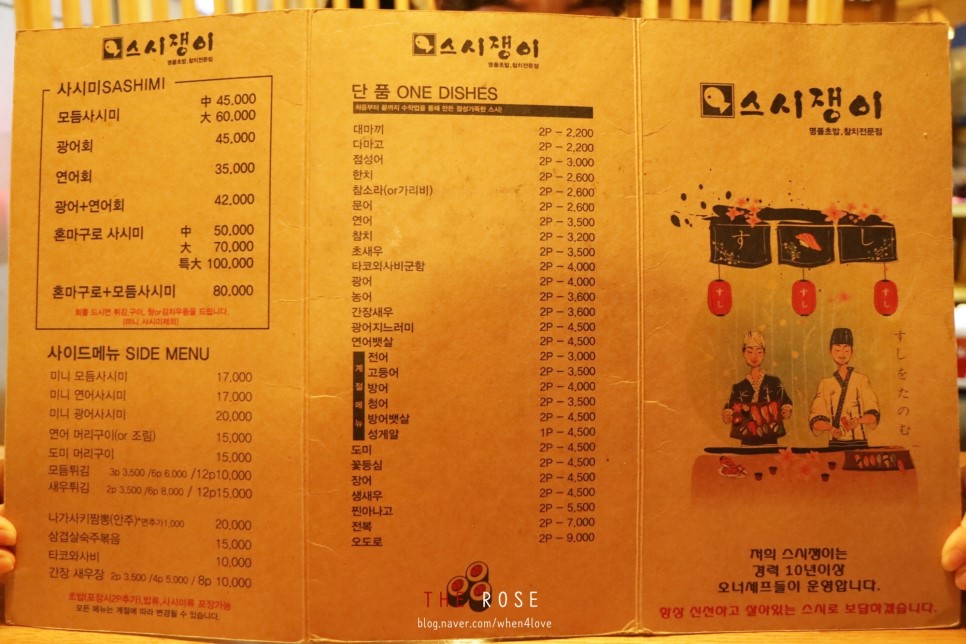 스시쟁이
명품초밥.참치전문점
사시미SASHIMI
모듬사시미 中 45,000
大 60,000
광어회 45,000
연어회 35,000
광어+연어회 42,000
혼마구로 사시미 中 50,000
大 70,000
특大 100,000
혼마구로+모듬사시미 80,000
회를 드시면 튀김,구이, 탕or김치우동을 드립니다.
(미니 사시미제외)
사이드메뉴 SIDE MENU
미니 모듬사시미 17,000
미니 연어사시미 17,000
미니 광어사시미 20,000
연어 머리구이(or 조림) 15,000
도미 머리구이 15,000
모듬튀김 3p 3,500 /6p 6,000 /12p10,000
새우튀김 2p 3,500 /6p 8,000 / 12p15,000
나가사키짬뽕(안주)*면추가1,000 20,000
삼겹살숙주볶음 15,000
타코와사비 10,000
간장 새우장 2p 3,500 /4p 5,000 / 8p 10,000
초밥(포장시2P추가),밥류,사시미류 포장가능
모든 메뉴는 계절에 따라 변경될 수 있습니다.
스시쟁이
명품초밥.참치전문점
단 품 ONE DISHES
처음부터 끝까지 수작업을 통해 만든 정성가득한 스시!
대마끼 2P - 2,200
다마고 2P - 2,200
점성어 2P - 3,000
한치 2P - 2,600
참소라(or가리비) 2P - 2,600
문어 2P - 2,600
연어 2P - 3,500
참치 2P - 3,200
초새우 2P - 3,500
타코와사비군함 2P - 4,000
광어 2P - 4,000
농어 2P - 3,600
간장새우 2P - 3,600
광어지느러미 2P - 4,500
연어뱃살 2P - 4,500
계절메뉴
전어 2P - 3,000
고등어 2P - 3,500
방어 2P - 4,000
청어 2P - 3,500
방어뱃살 2P - 4,500
성게알 1P - 4,500
도미 2P - 4,500
꽃등심 2P - 4,500
장어 2P - 4,500
생새우 2P - 4,500
찐아나고 2P - 5,500
전복 2P - 7,000
오도로 2P - 9,000
THE ROSE
blog.naver.com/when4love
스시쟁이
명품초밥.참치전문점
す し
すし すし すし
すしをたのむ
저희 스시쟁이는
경력 10년이상
오너셰프들이 운영합니다.
항상 신선하고 살아있는 스시로 보답하겠습니다.